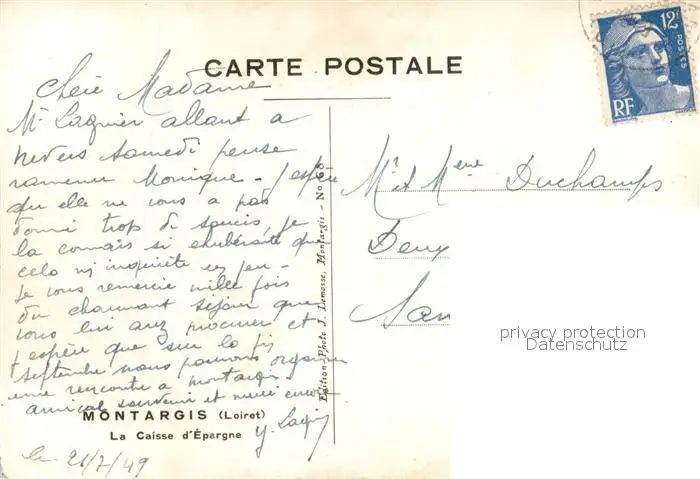 CARTE POSTALE
Chère Madame
Mr Laquier allant a
Nevers Samedi pense
ramener Monique - J'espère
qu'elle ne vous a pas
donné trop de soucis, je
la connais si exubérante que
cela m'inquiète un peu -
Je vous remercie mille fois
du charmant séjour que
vous lui avez procurer et
j'espère que sur la fin
septembre nous pourrons organiser
une rencontre a montargis -
amical souvenir et merci encore
MONTARGIS (Loiret)
La Caisse d'Épargne
le 21/7/49
Edition-Photo J. Lemosse, Montargis - No 168
12F
POSTES
RF
Mr et Mme Duchamps
Deux
San
privacy protection
Datenschutz